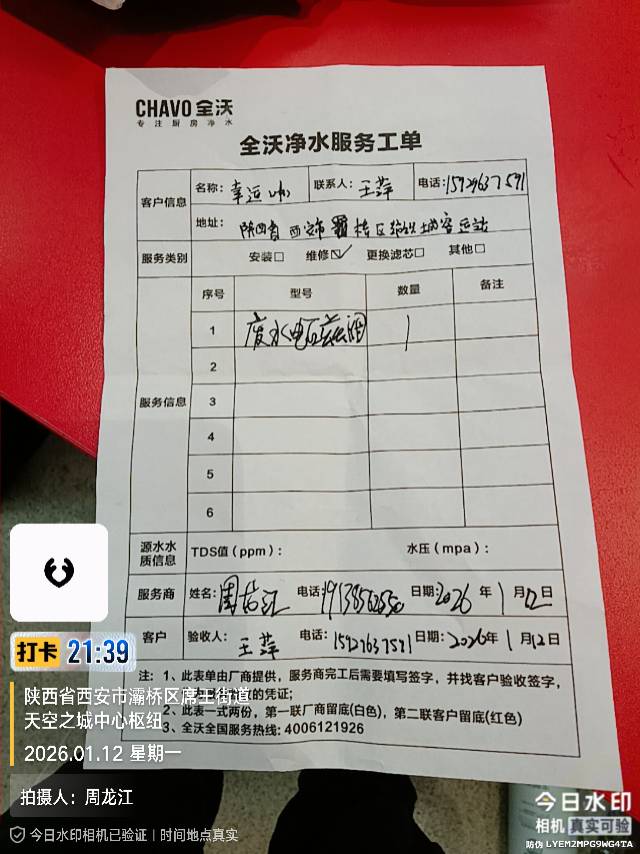 CHAVO 全沃
专注厨房净水
全沃净水服务工单
客户信息 名称: 幸运咖 联系人: 王萍 电话:
地址: 陕西省西安市灞桥区 客运站
服务类别 安装□ 维修☑ 更换滤芯□ 其他□
服务信息 序号 型号 数量 备注
1 废水电磁阀 1
2
3
4
5
6
源水水质信息 TDS值(ppm): 水压(mpa):
服务商 姓名: 周龙江 电话: 日期: 2026年1月12日
客户 验收人: 王萍 电话: 日期: 2026年1月12日
注: 1、此表单由厂商提供, 服务商完工后需要填写签字, 并找客户验收签字,
的凭证;
2、此表一式两份, 第一联厂商留底(白色), 第二联客户留底(红色)
3、全沃全国服务热线: 4006121926
打卡 21:39
陕西省西安市灞桥区席王街道
天空之城中心枢纽
2026.01.12 星期一
拍摄人: 周龙江
今日水印相机已验证 | 时间地点真实
今日水印
相机 真实可验
防伪 LYEM2MPG9WG4TA